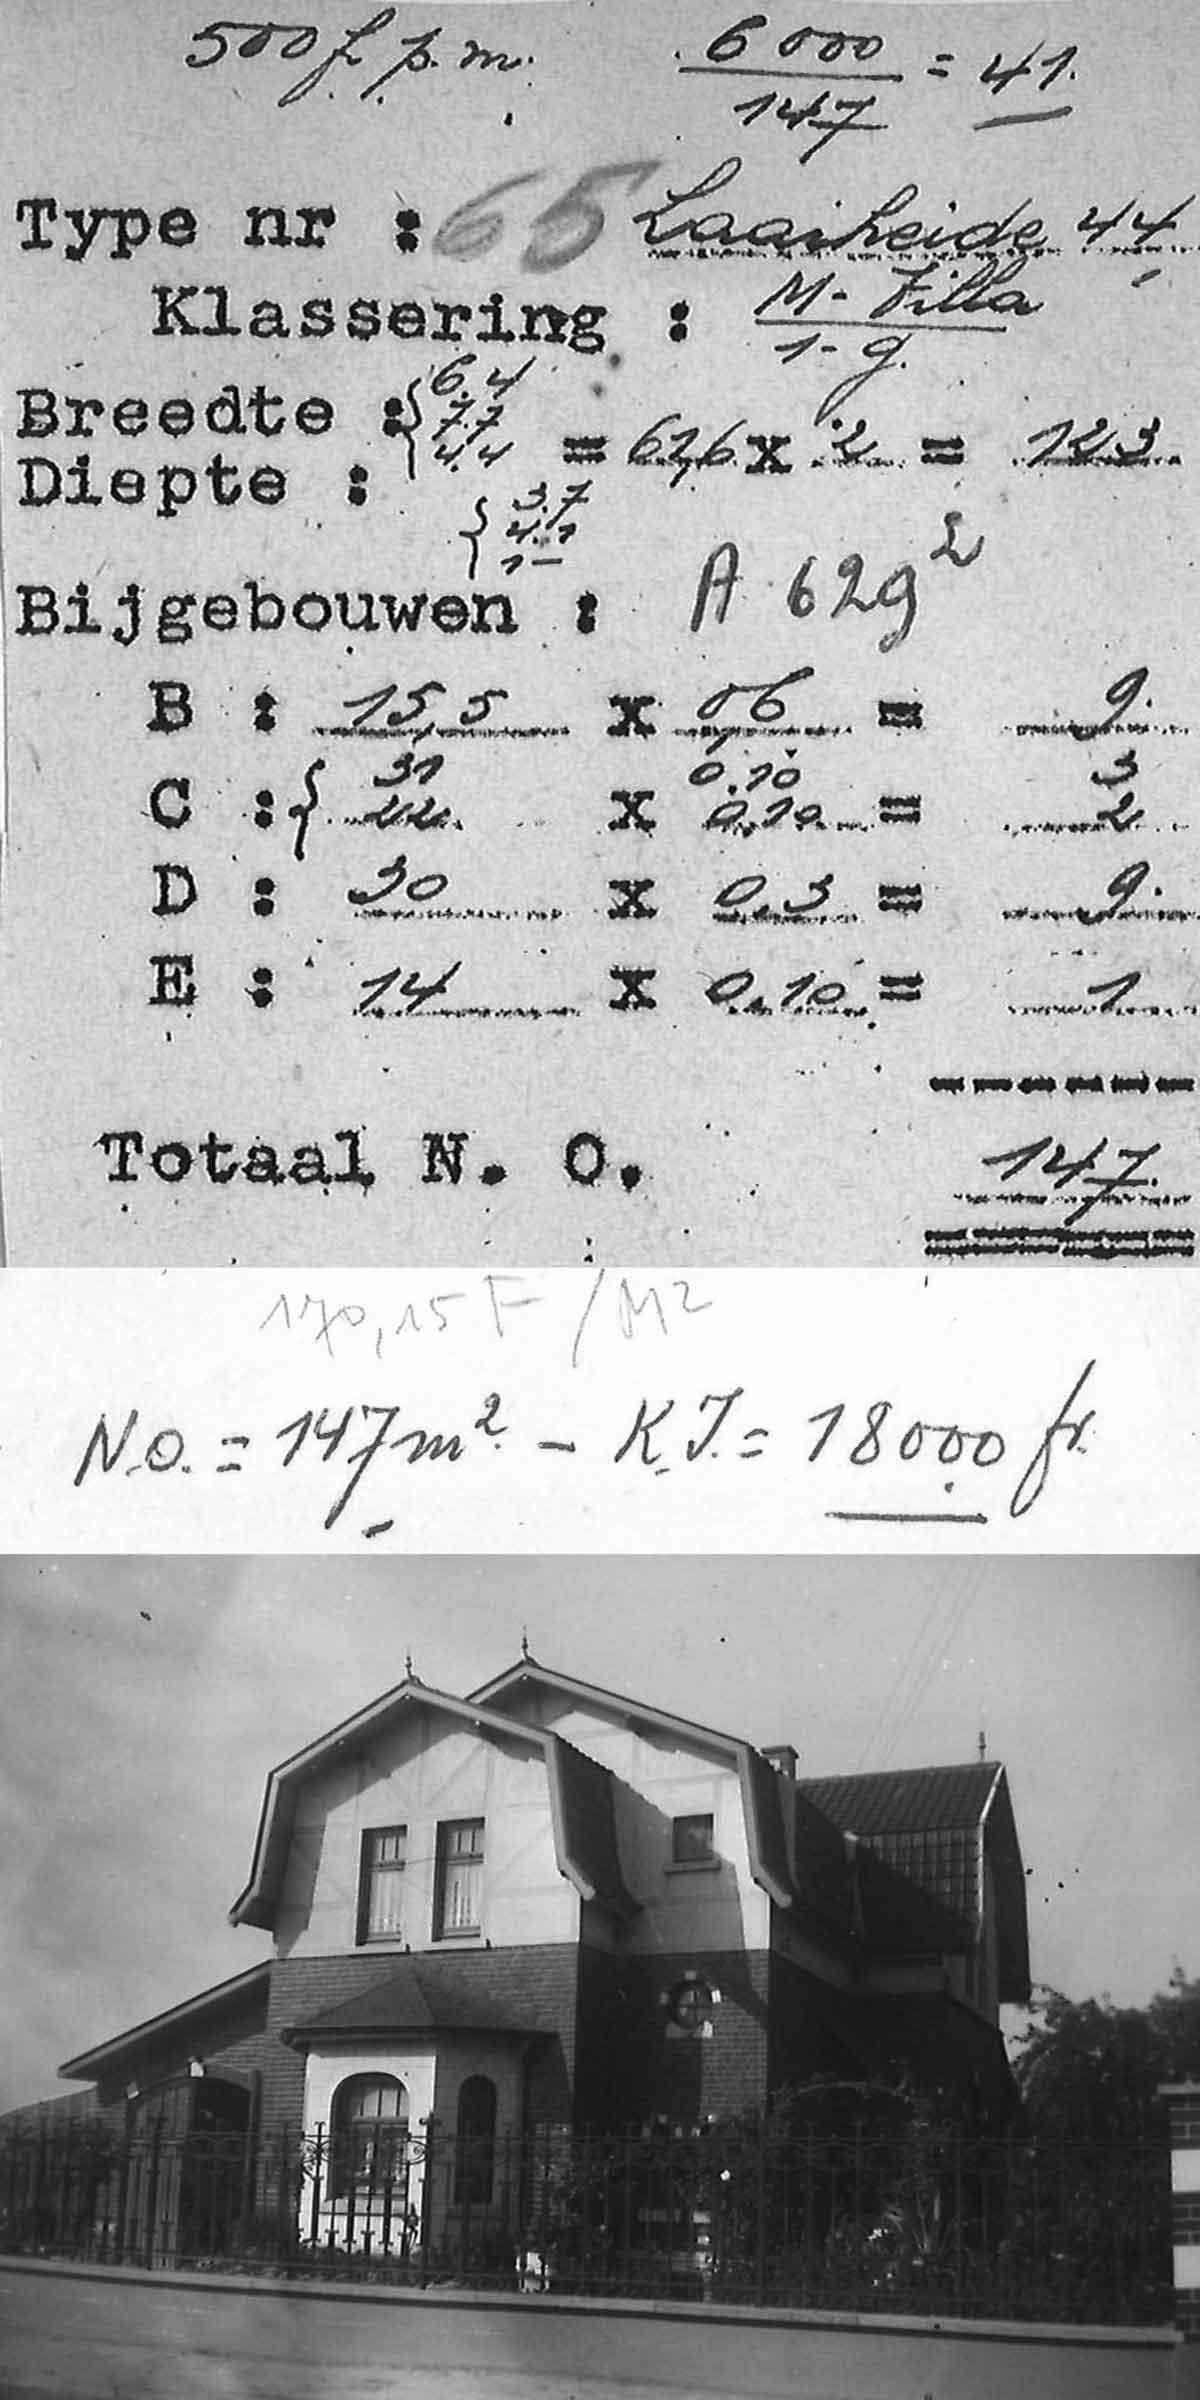 500 f. p.m. 6000 / 147 = 41.
Type nr : 65 Laarheide 44
Klassering : M - Villa
1 - g.
Breedte : { 6.4
7.7
4.4
= 61,6 x 2 = 123
Diepte :
{ 3.7
4.1
1 -
Bijgebouwen : A 62g²
B : 15,5 x 06 = 9.
C : { 31 x 0.10 = 3
22 0,10 2
D : 30 x 0,3 = 9.
E : 14 x 0,10 = 1
Totaal N. O. 147.
170,15 F / M2
N.O. = 147 m² - K.I. = 18000 fr.